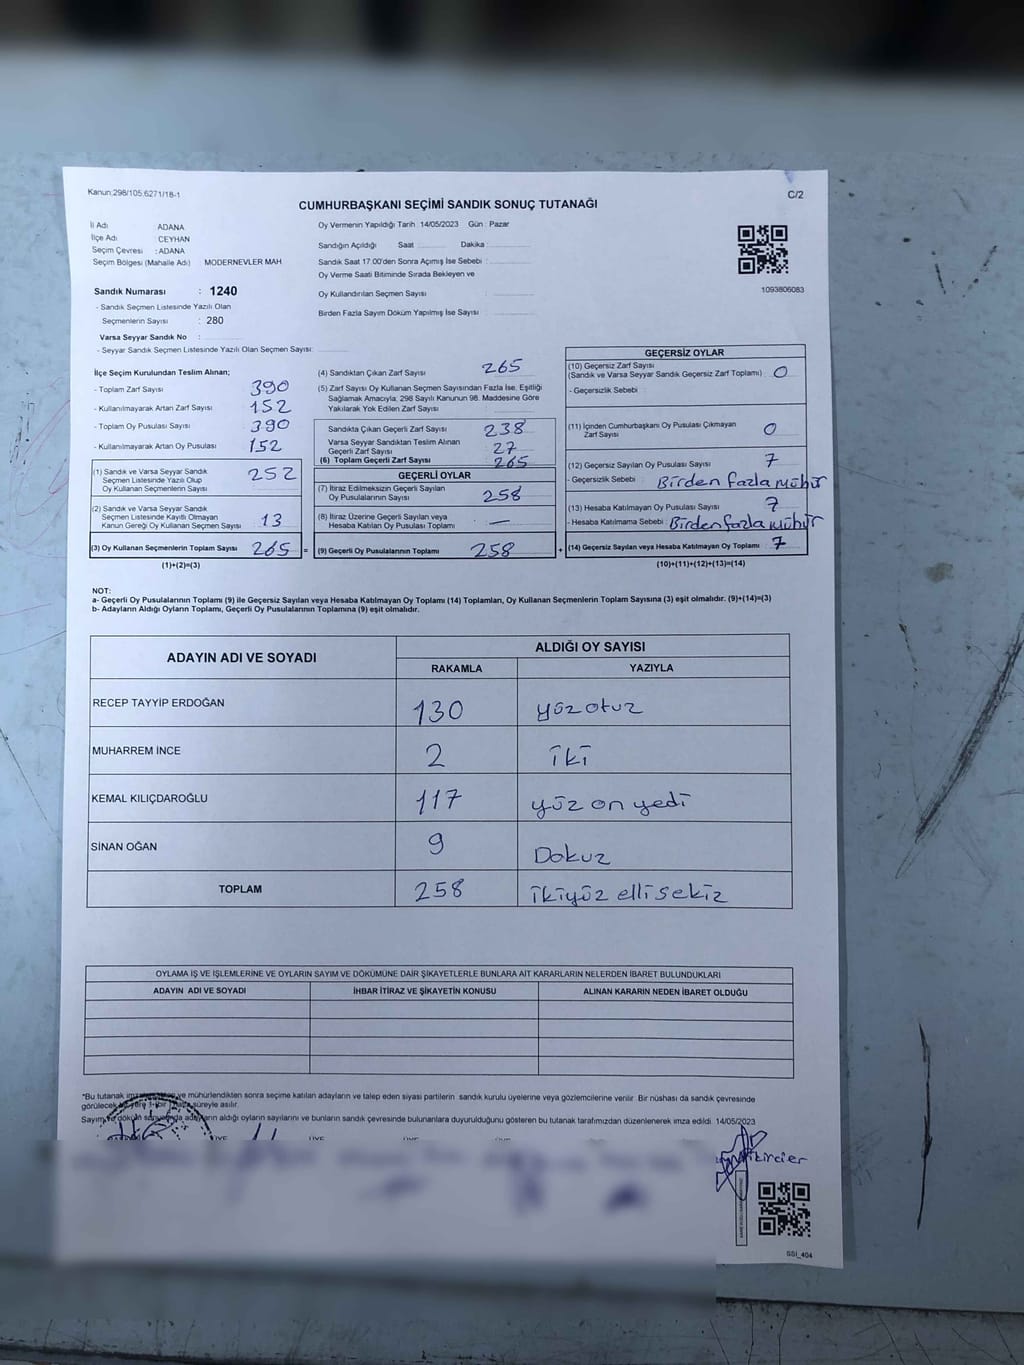 Kanun:298/105.6271/18-1
C/2
CUMHURBAŞKANI SEÇİMİ SANDIK SONUÇ TUTANAĞI
İl Adı ADANA
İlçe Adı CEYHAN
Seçim Çevresi : ADANA
Seçim Bölgesi (Mahalle Adı) MODERNEVLER MAH
Sandık Numarası : 1240
- Sandık Seçmen Listesinde Yazılı Olan
Seçmenlerin Sayısı : 280
Varsa Seyyar Sandık No :
- Seyyar Sandık Seçmen Listesinde Yazılı Olan Seçmen Sayısı:
Oy Vermenin Yapıldığı Tarih : 14/05/2023 Gün : Pazar
Sandığın Açıldığı Saat Dakika
Sandık Saat 17.00'den Sonra Açımış İse Sebebi :
Oy Verme Saati Bitiminde Sırada Bekleyen ve
Oy Kullandırılan Seçmen Sayısı :
Birden Fazla Sayım Döküm Yapılmış İse Sayısı :
1093806083
İlçe Seçim Kurulundan Teslim Alınan;
- Toplam Zarf Sayısı 390
- Kullanılmayarak Artan Zarf Sayısı 152
- Toplam Oy Pusulası Sayısı 390
- Kullanılmayarak Artan Oy Pusulası 152
(1) Sandık ve Varsa Seyyar Sandık
Seçmen Listesinde Yazılı Olup
Oy Kullanan Seçmenlerin Sayısı 252
(2) Sandık ve Varsa Seyyar Sandık
Seçmen Listesinde Kayıtlı Olmayan
Kanun Gereği Oy Kullanan Seçmen Sayısı 13
(3) Oy Kullanan Seçmenlerin Toplam Sayısı 265 =
(1)+(2)=(3)
(4) Sandıktan Çıkan Zarf Sayısı 265
(5) Zarf Sayısı Oy Kullanan Seçmen Sayısından Fazla İse, Eşitliği
Sağlamak Amacıyla; 298 Sayılı Kanunun 98. Maddesine Göre
Yakılarak Yok Edilen Zarf Sayısı
Sandıkta Çıkan Geçerli Zarf Sayısı 238
Varsa Seyyar Sandıktan Teslim Alınan
Geçerli Zarf Sayısı 27
(6) Toplam Geçerli Zarf Sayısı 265
GEÇERLİ OYLAR
(7) İtiraz Edilmeksizin Geçerli Sayılan
Oy Pusulalarının Sayısı 258
(8) İtiraz Üzerine Geçerli Sayılan veya
Hesaba Katılan Oy Pusulası Toplamı —
(9) Geçerli Oy Pusulalarının Toplamı 258 +
GEÇERSİZ OYLAR
(10) Geçersiz Zarf Sayısı
(Sandık ve Varsa Seyyar Sandık Geçersiz Zarf Toplamı) : 0
- Geçersizlik Sebebi :
(11) İçinden Cumhurbaşkanı Oy Pusulası Çıkmayan
Zarf Sayısı 0
(12) Geçersiz Sayılan Oy Pusulası Sayısı 7
- Geçersizlik Sebebi : Birden fazla mühür
(13) Hesaba Katılmayan Oy Pusulası Sayısı 7
- Hesaba Katılmama Sebebi : Birden fazla mühür
(14) Geçersiz Sayılan veya Hesaba Katılmayan Oy Toplamı : 7
(10)+(11)+(12)+(13)=(14)
NOT:
a- Geçerli Oy Pusulalarının Toplamı (9) ile Geçersiz Sayılan veya Hesaba Katılmayan Oy Toplamı (14) Toplamları, Oy Kullanan Seçmenlerin Toplam Sayısına (3) eşit olmalıdır. (9)+(14)=(3)
b- Adayların Aldığı Oyların Toplamı, Geçerli Oy Pusulalarının Toplamına (9) eşit olmalıdır.
ADAYIN ADI VE SOYADI ALDIĞI OY SAYISI
RAKAMLA YAZIYLA
RECEP TAYYİP ERDOĞAN 130 yüz otuz
MUHARREM İNCE 2 iki
KEMAL KILIÇDAROĞLU 117 yüz on yedi
SİNAN OĞAN 9 Dokuz
TOPLAM 258 ikiyüz elli sekiz
OYLAMA İŞ VE İŞLEMLERİNE VE OYLARIN SAYIM VE DÖKÜMÜNE DAİR ŞİKAYETLERLE BUNLARA AİT KARARLARIN NELERDEN İBARET BULUNDUKLARI
ADAYIN ADI VE SOYADI İHBAR İTİRAZ VE ŞİKAYETİN KONUSU ALINAN KARARIN NEDEN İBARET OLDUĞU
*Bu tutanak ve mühürlendikten sonra seçime katılan adayların ve talep eden siyasi partilerin sandık kurulu üyelerine veya gözlemcilerine verilir. Bir nüshası da sandık çevresinde
görülecek süreyle asılır.
Sayım ve döküm adayların aldığı oyların sayılarını ve bunların sandık çevresinde bulunanlara duyurulduğunu gösteren bu tutanak tarafımızdan düzenlenerek imza edildi. 14/05/2023
ÜYE ÜYE ÜYE ÜYE
SSI_404